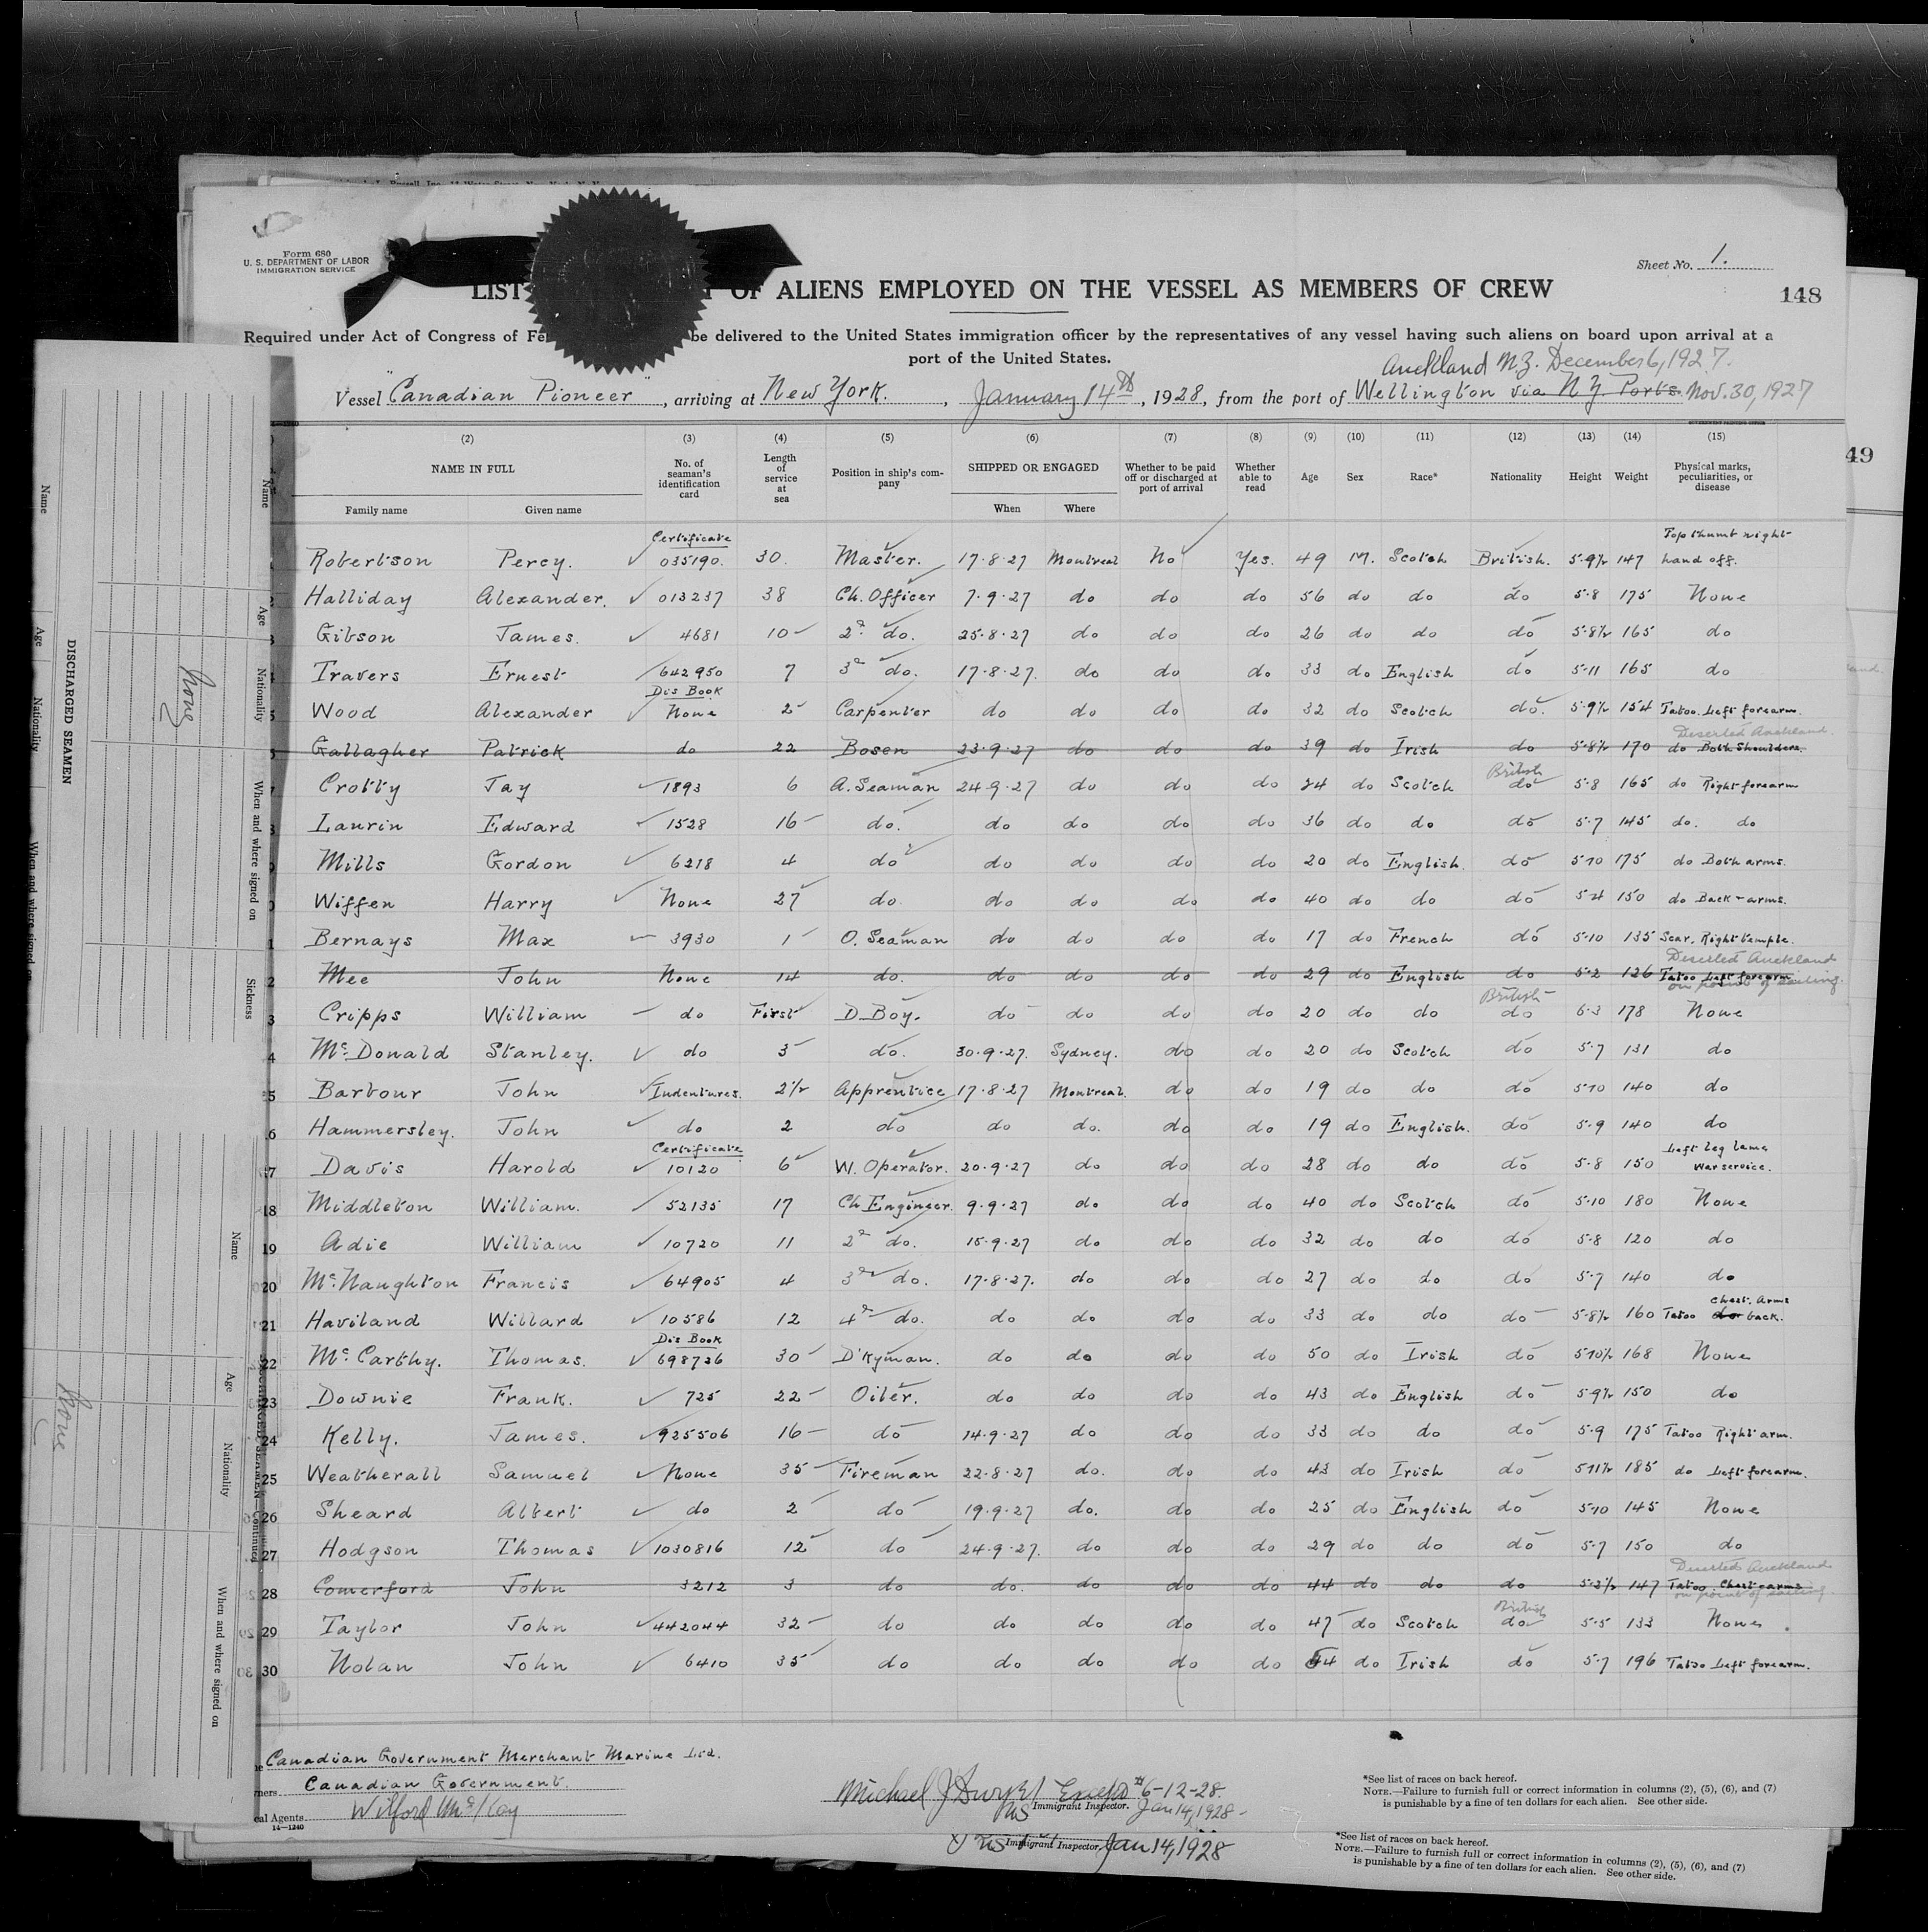 Form 680
U. S. DEPARTMENT OF LABOR
IMMIGRATION SERVICE
Sheet No. 1.
148
LIST OF ALIENS EMPLOYED ON THE VESSEL AS MEMBERS OF CREW
Required under Act of Congress of be delivered to the United States immigration officer by the representatives of any vessel having such aliens on board upon arrival at a
port of the United States.
Auckland N.Z. December 6, 1927.
Vessel "Canadian Pioneer", arriving at New York., January 14th, 1928, from the port of Wellington via N.Z. Ports. Nov. 30, 1927
49
(2) (3) (4) (5) (6) (7) (8) (9) (10) (11) (12) (13) (14) (15)
NAME IN FULL No. of seaman's identification card Length of service at sea Position in ship's company SHIPPED OR ENGAGED Whether to be paid off or discharged at port of arrival Whether able to read Age Sex Race* Nationality Height Weight Physical marks, peculiarities, or disease
Family name Given name When Where
Certificate Top thumb right
Robertson Percy. 035190. 30. Master. 17-8-27 Montreal No Yes. 49 M. Scotch British. 5-9½ 147 hand off.
Halliday Alexander. 013237 38 Ch. Officer 7-9-27 do do do 56 do do do 5-8 175 None
Gibson James. 4681 10 2d do. 25-8-27 do do do 26 do do do 5-8½ 165 do
Travers Ernest 642950 7 3d do. 17-8-27. do do do 33 do English do 5-11 165 do
Dis Book
Wood Alexander None 2 Carpenter do do do do 32 do Scotch do. 5-9½ 154 Tatoo. Left forearm.
Deserted Auckland.
Gallagher Patrick do 22 Bosen 23-9-27 do do do 39 do Irish do 5-8½ 170 do Both Shoulders.
British
7 Crotty Jay 1893 6 A. Seaman 24-9-27 do do do 24 do Scotch do 5-8 165 do Right forearm
Laurin Edward 1528 16 do. do do do do 36 do do do 5-7 145 do. do
Mills Gordon 6218 4 do do do do do 20 do English. do 5-10 175 do Both arms.
Wiffen Harry None 27 do. do do do do 40 do do do 5-4 150 do Back - arms.
1 Bernays Max 3930 1 O. Seaman do do do do 17 do French do 5-10 135 Scar. Right temple.
Deserted Auckland
2 Mee John None 14 do. do do do do 29 do English do 5-2 126 Tatoo Left forearm
on point of sailing.
British
3 Cripps William do First D. Boy. do do do do 20 do do do 6-3 178 None
4 McDonald Stanley. do 3 do. 30-9-27. Sydney. do do 20 do Scotch do 5-7 131 do
5 Barbour John Indentures. 2½ Apprentice 17-8-27 Montreal. do do 19 do do do 5-10 140 do
6 Hammersley. John do 2 do do do. do do 19 do English. do 5-9 140 do
Certificate Left leg lame
17 Davis Harold 10120 6 W. Operator. 20-9-27 do do do 28 do do do 5-8 150 War service.
18 Middleton William. 52135 17 Ch Engineer. 9-9-27 do do do 40 do Scotch do 5-10 180 None
19 Adie William 10720 11 2d do. 15-9-27 do do do 32 do do do 5-8 120 do
20 McNaughton Francis 64905 4 3d do. 17-8-27. do do do 27 do do do 5-7 140 do
Chest. Arms
21 Haviland Willard 10586 12 4th do. do do do do 33 do do do 5-8½ 160 Tatoo do back.
Dis Book
22 McCarthy. Thomas. 698726 30 D'Kyman. do do do do 50 do Irish do 5-10½ 168 None
23 Downie Frank. 725 22 Oiler. do do do do 43 do English do 5-9½ 150 do
24 Kelly. James. 925506 16 do 14-9-27 do do do 33 do do do 5-9 175 Tatoo Right arm.
25 Weatherall Samuel None 35 Fireman 22-8-27 do. do do 43 do Irish do 5-11½ 185 do Left forearm.
26 Sheard Albert do 2 do 19-9-27 do. do do 25 do English do 5-10 145 None
27 Hodgson Thomas 1030816 12 do 24-9-27. do do do 29 do do do 5-7 150 do
Deserted Auckland
28 Comerford John 3212 3 do do. do do do 44 do do do 5-3½ 147 Tatoo. Chest & arms
on point of sailing.
British
29 Taylor John 442044 32 do do do do do 47 do Scotch do 5-5 133 None
30 Nolan John 6410 35 do do do do do 44 do Irish do 5-7 196 Tatoo Left forearm.
Canadian Government Merchant Marine Ltd.
Canadian Government.
Wilford McKay
14-1240
Michael J Dwyer Except #6-12-28.
US Immigrant Inspector. Jan 14, 1928
*See list of races on back hereof.
NOTE.—Failure to furnish full or correct information in columns (2), (5), (6), and (7)
is punishable by a fine of ten dollars for each alien. See other side.
US Immigrant Inspector. Jan 14, 1928
*See list of races on back hereof.
NOTE.—Failure to furnish full or correct information in columns (2), (5), (6), and (7)
is punishable by a fine of ten dollars for each alien. See other side.
DISCHARGED SEAMEN
Name Age Nationality When and where signed on
Name Age Nationality When and where signed on Sickness
None
DISCHARGED SEAMEN Continued
Name Age Nationality When and where signed on
None